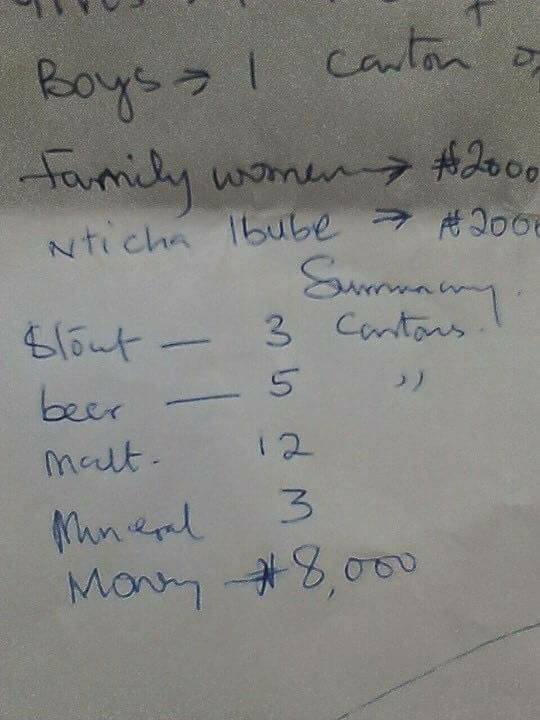 Boys → 1 Carton
Family women → ₦2000
Nticha Ibube ⇒ ₦2000
Summary.
Stout — 3 Cartons.
beer — 5 ,,
Malt. 12
Mineral 3
Money ₦8,000